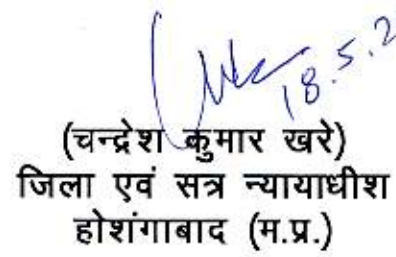 18.5.2
(चन्द्रेश कुमार खरे)
जिला एवं सत्र न्यायाधीश
होशंगाबाद (म.प्र.)